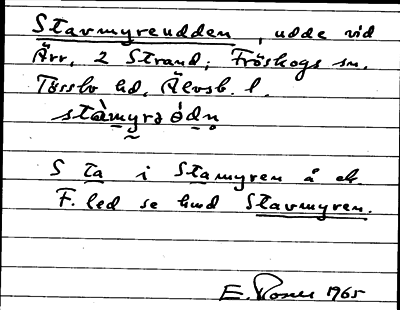 Stavmyreudden, udde vid
Ärr, 2 Strand, Fröskogs sn.
Tössbo hd, Älvsb. l.
stàmyrəódn̥
S ta i Stamyren å ek.
F. led se hmd Stavmyren.
E. 1965